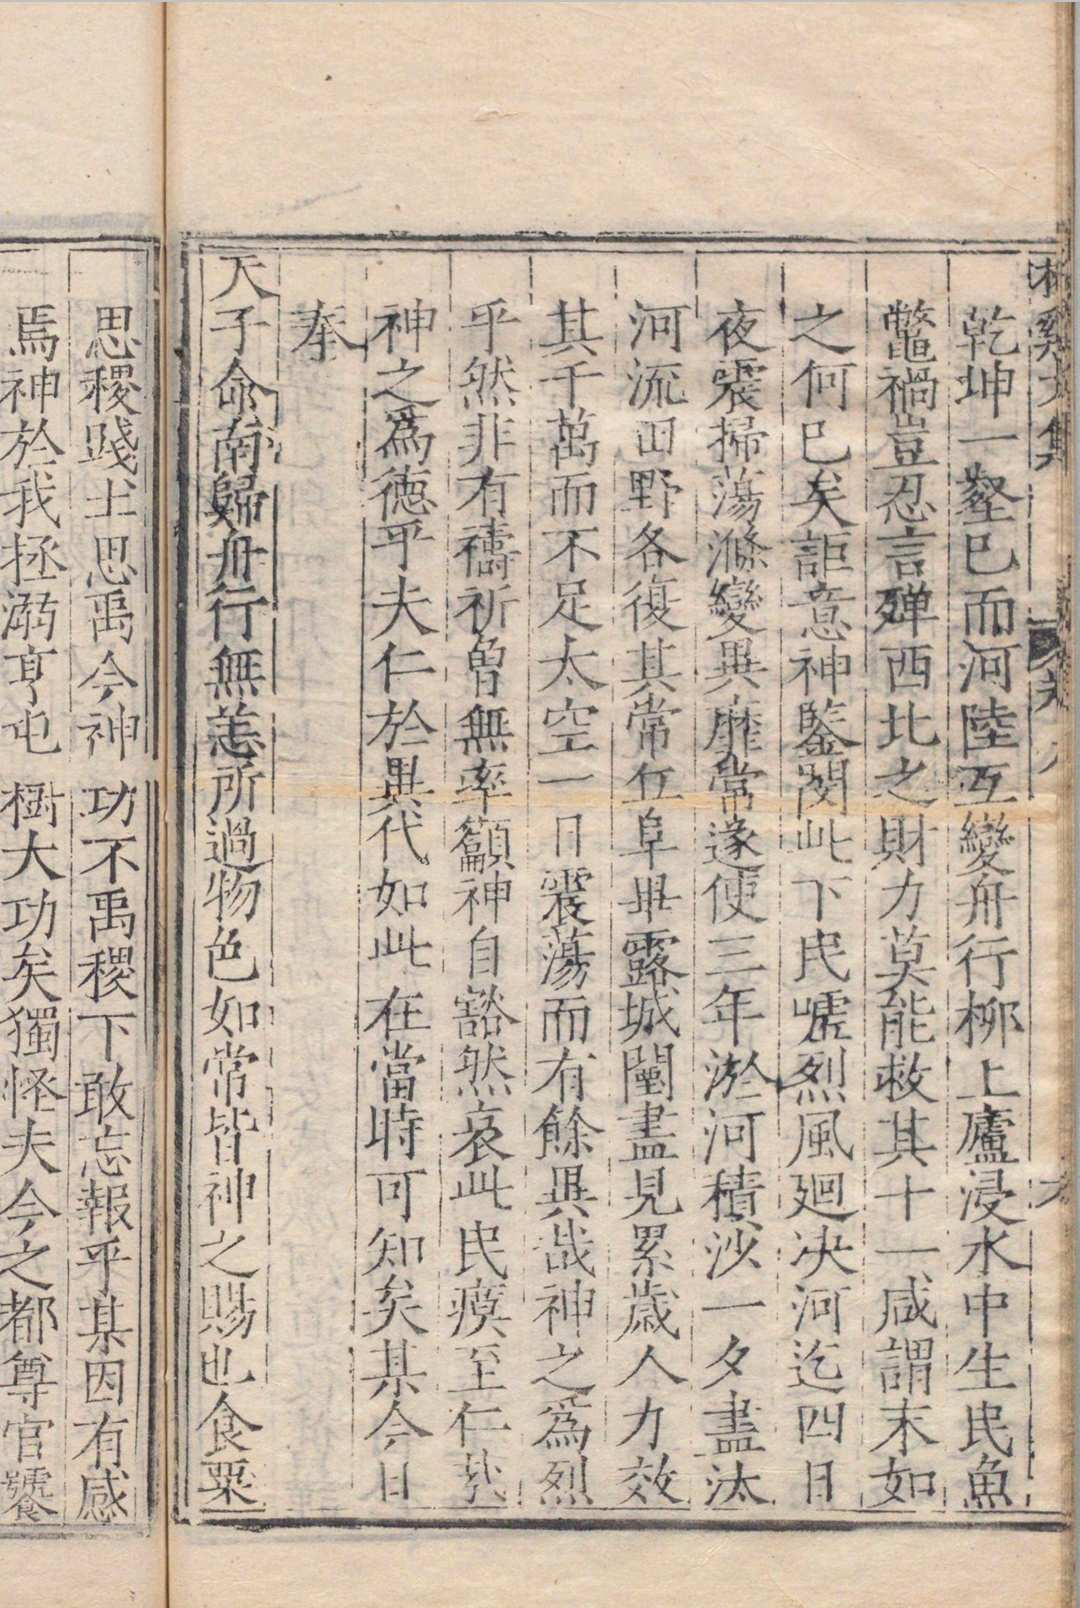 乾坤一壑巳而河陸互變舟行柳上廬浸水中生民魚
鼈禍豈忍言殫西北之財力莫能救其十一咸謂末如
之何巳矣詎意神鑒閔此下民噓烈風廻决河迄四日
夜震掃蕩滌變異靡常遂使三年淤河積沙一夕盡汰
河流田野各復其常丘阜畢露城闉盡見累歲人力效
其千萬而不足太空一日震蕩而有餘異哉神之爲烈
乎然非有禱祈曽無率籲神自豁然哀此民瘼至仁哉
神之爲德乎夫仁於異代如此在當時可知矣某今日
奉
天子命南歸舟行無恙所過物色如常皆神之賜也食粟
思稷踐土思禹今神功不禹稷下敢忘報乎某因有感
焉神於我拯溺亨屯樹大功矣獨怪夫今之都尊官饕